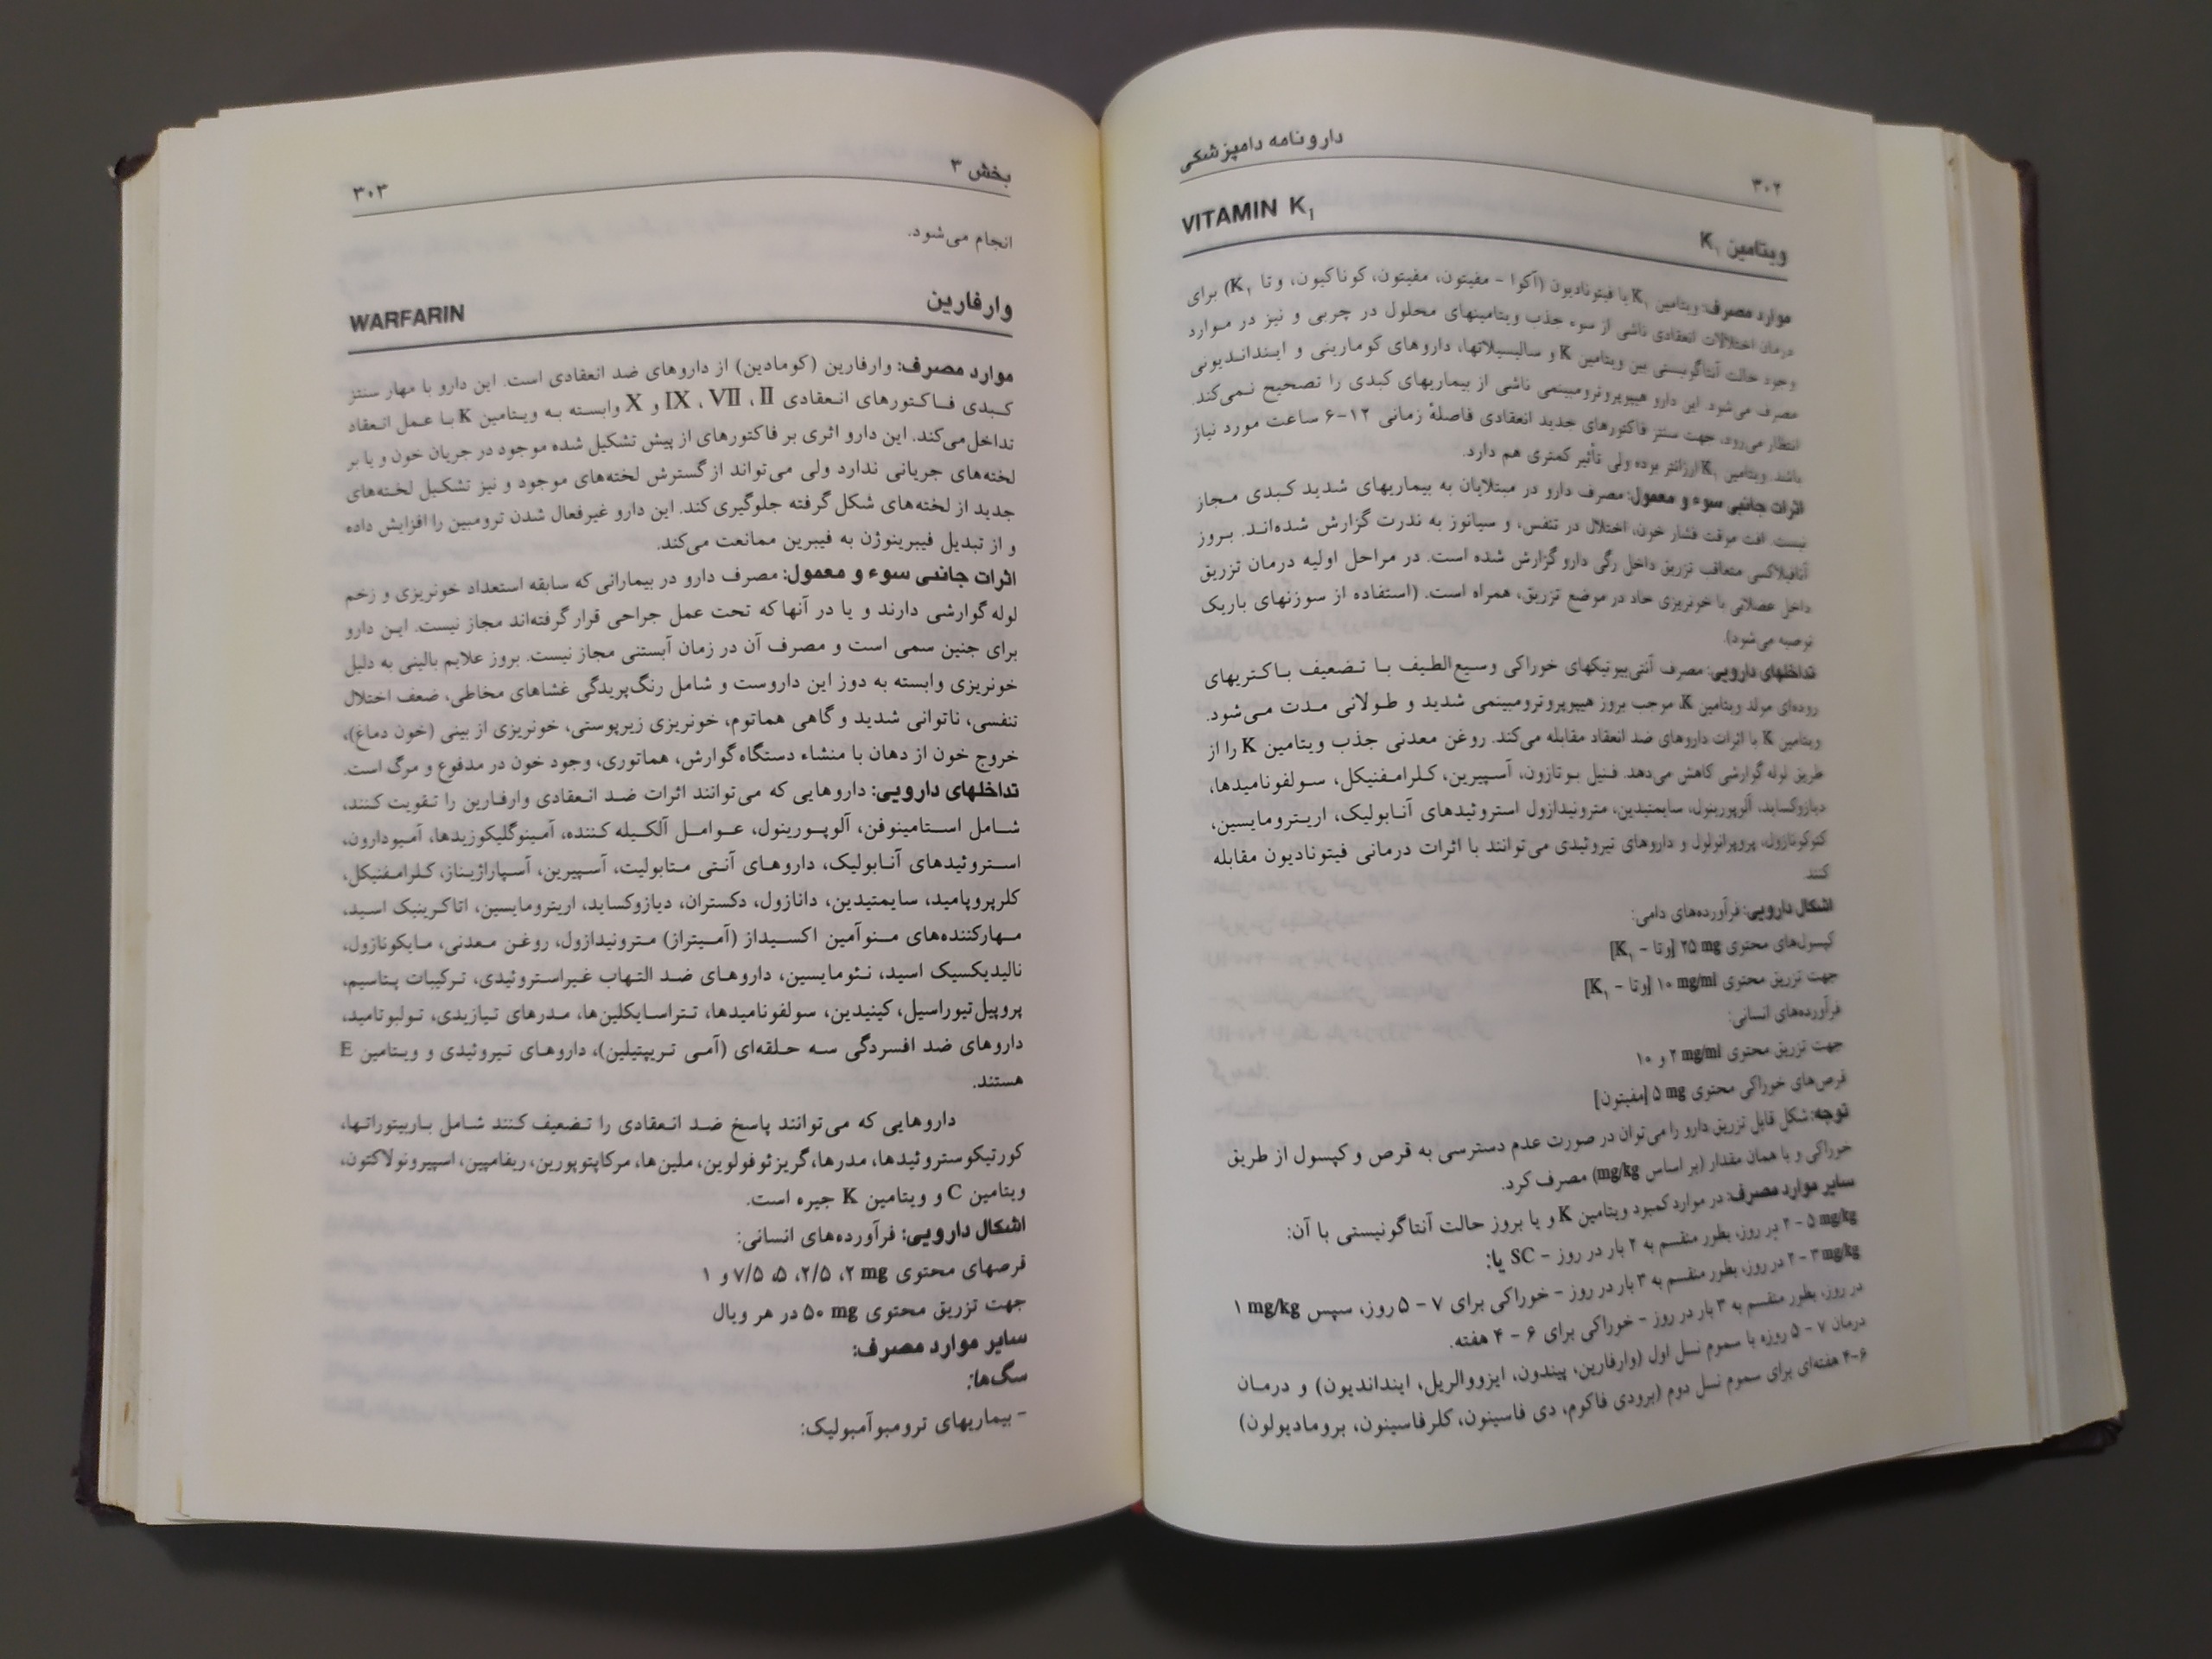 ۳۰۲
دارونامه دامپزشکی
ویتامین K۱
VITAMIN K۱
موارد مصرف: ویتامین K۱ یا فیتونادیون (آکوا - مفیتون، مفیتون، کوناکیون، وتا K۱) برای
درمان اختلالات انعقادی ناشی از سوء جذب ویتامینهای محلول در چربی و نیز در موارد
وجود حالت آنتاگونیستی بین ویتامین K و سالیسیلاتها، داروهای کومارینی و اینداندیونی
مصرف می‌شود. این دارو هیپوپروترومبینمی ناشی از بیماریهای کبدی را تصحیح نمی‌کند.
انتظار می‌رود، جهت سنتز فاکتورهای جدید انعقادی فاصلهٔ زمانی ۱۲-۶ ساعت مورد نیاز
باشد. ویتامین K۱ ارزانتر بوده ولی تأثیر کمتری هم دارد.
اثرات جانبی سوء و معمول: مصرف دارو در مبتلایان به بیماریهای شدید کبدی مجاز
نیست. افت موقت فشار خون، اختلال در تنفس، و سیانوز به ندرت گزارش شده‌اند. بروز
آنافیلاکسی متعاقب تزریق داخل رگی دارو گزارش شده است. در مراحل اولیه درمان تزریق
داخل عضلانی با خونریزی حاد در موضع تزریق، همراه است. (استفاده از سوزنهای باریک
توصیه می‌شود).
تداخلهای دارویی: مصرف آنتی‌بیوتیکهای خوراکی وسیع‌الطیف با تضعیف باکتریهای
روده‌ای مولد ویتامین K، موجب بروز هیپوپروترومبینمی شدید و طولانی مدت می‌شود.
ویتامین K با اثرات داروهای ضد انعقاد مقابله می‌کند. روغن معدنی جذب ویتامین K را از
طریق لوله گوارشی کاهش می‌دهد. فنیل بوتازون، آسپیرین، کلرامفنیکل، سولفونامیدها،
دیازوکساید، آلوپورینول، سایمتیدین، مترونیدازول استروئیدهای آنابولیک، اریترومایسین،
کتوکونازول، پروپرانولول و داروهای تیروئیدی می‌توانند با اثرات درمانی فیتونادیون مقابله
کنند.
اشکال دارویی: فرآورده‌های دامی:
کپسول‌های محتوی ۲۵ mg [وتا - K۱]
جهت تزریق محتوی ۱۰ mg/ml [وتا - K۱]
فرآورده‌های انسانی:
جهت تزریق محتوی ۲ mg/ml و ۱۰
قرص‌های خوراکی محتوی ۵ mg [مفیتون]
توجه: شکل قابل تزریق دارو را می‌توان در صورت عدم دسترسی به قرص و کپسول از طریق
خوراکی و با همان مقدار (بر اساس mg/kg) مصرف کرد.
سایر موارد مصرف: در موارد کمبود ویتامین K و یا بروز حالت آنتاگونیستی با آن:
۲ - ۵ mg/kg در روز، بطور منقسم به ۲ بار در روز - SC یا:
۲ - ۳ mg/kg در روز، بطور منقسم به ۳ بار در روز - خوراکی برای ۷ - ۵ روز، سپس ۱ mg/kg
در روز، بطور منقسم به ۳ بار در روز - خوراکی برای ۶ - ۴ هفته.
درمان ۷ - ۵ روزه با سموم نسل اول (وارفارین، پیندون، ایزووالریل، اینداندیون) و درمان
۶-۴ هفته‌ای برای سموم نسل دوم (برودی فاکوم، دی فاسینون، کلرفاسینون، برومادیولون)
بخش ۳
۳۰۳
انجام می‌شود.
وارفارین
WARFARIN
موارد مصرف: وارفارین (کومادین) از داروهای ضد انعقادی است. این دارو با مهار سنتز
کبدی فاکتورهای انعقادی II ، VII ، IX و X وابسته به ویتامین K با عمل انعقاد
تداخل می‌کند. این دارو اثری بر فاکتورهای از پیش تشکیل شده موجود در جریان خون و یا بر
لخته‌های جریانی ندارد ولی می‌تواند از گسترش لخته‌های موجود و نیز تشکیل لخته‌های
جدید از لخته‌های شکل گرفته جلوگیری کند. این دارو غیرفعال شدن ترومبین را افزایش داده
و از تبدیل فیبرینوژن به فیبرین ممانعت می‌کند.
اثرات جانبی سوء و معمول: مصرف دارو در بیمارانی که سابقه استعداد خونریزی و زخم
لوله گوارشی دارند و یا در آنها که تحت عمل جراحی قرار گرفته‌اند مجاز نیست. این دارو
برای جنین سمی است و مصرف آن در زمان آبستنی مجاز نیست. بروز علایم بالینی به دلیل
خونریزی وابسته به دوز این داروست و شامل رنگ‌پریدگی غشاهای مخاطی، ضعف اختلال
تنفسی، ناتوانی شدید و گاهی هماتوم، خونریزی زیرپوستی، خونریزی از بینی (خون دماغ)،
خروج خون از دهان با منشاء دستگاه گوارش، هماتوری، وجود خون در مدفوع و مرگ است.
تداخلهای دارویی: داروهایی که می‌توانند اثرات ضد انعقادی وارفارین را تقویت کنند،
شامل استامینوفن، آلوپورینول، عوامل آلکیله کننده، آمینوگلیکوزیدها، آمیودارون،
استروئیدهای آنابولیک، داروهای آنتی متابولیت، آسپیرین، آسپاراژیناز، کلرامفنیکل،
کلرپروپامید، سایمتیدین، دانازول، دکستران، دیازوکساید، اریترومایسین، اتاکرینیک اسید،
مهارکننده‌های منوآمین اکسیداز (آمیتراز) مترونیدازول، روغن معدنی، مایکونازول،
نالیدیکسیک اسید، نئومایسین، داروهای ضد التهاب غیراستروئیدی، ترکیبات پتاسیم،
پروپیل‌تیوراسیل، کینیدین، سولفونامیدها، تتراسایکلین‌ها، مدرهای تیازیدی، تولبوتامید،
داروهای ضد افسردگی سه حلقه‌ای (آمی تریپتیلین)، داروهای تیروئیدی و ویتامین E
هستند.
داروهایی که می‌توانند پاسخ ضد انعقادی را تضعیف کنند شامل باربیتوراتها،
کورتیکوستروئیدها، مدرها، گریزئوفولوین، ملین‌ها، مرکاپتوپورین، ریفامپین، اسپیرونولاکتون،
ویتامین C و ویتامین K جیره است.
اشکال دارویی: فرآورده‌های انسانی:
قرصهای محتوی ۲ mg، ۲/۵، ۵، ۷/۵ و ۱
جهت تزریق محتوی ۵۰ mg در هر ویال
سایر موارد مصرف:
سگ‌ها:
- بیماریهای ترومبوآمبولیک: